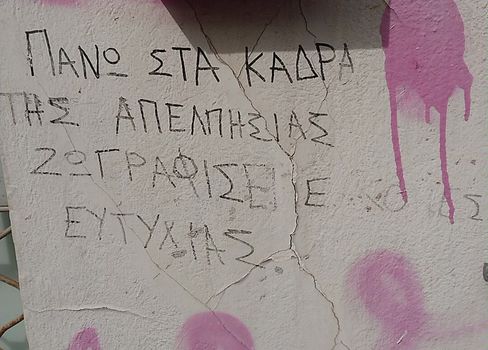 ΠΑΝΩ ΣΤΑ ΚΑΔΡΑ
ΤΗΣ ΑΠΕΛΠΗΣΙΑΣ
ΖΩΓΡΑΦΙΣΕ
ΕΥΤΥΧΙΑΣ